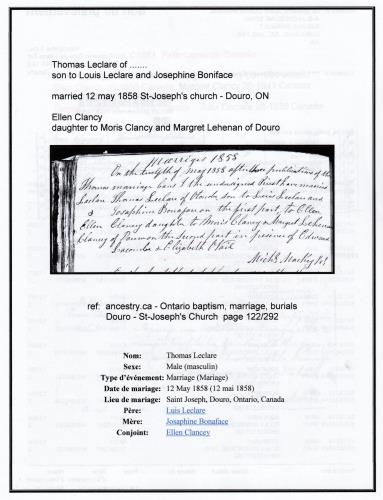 Thomas Leclare of .......
son to Louis Leclare and Josephine Boniface
married 12 may 1858 St-Joseph's church - Douro, ON
Ellen Clancy
daughter to Moris Clancy and Margret Lehenan of Douro
Marriges 1858
On the twelfth of May 1858 after three publications of the
Thomas marriage bans I the undersigned Priest have married
Leclar Thomas Leclar of son to Luis Leclar and
& Josaphine Bonafas on the first part, to Ellen
Ellen Clancy daughter to Moris Clancy & Margret Lehenan
Clancy of Douro on the second part in presence of Edward
& Elizabeth
Mich
ref: ancestry.ca - Ontario baptism, marriage, burials
Douro - St-Joseph's Church page 122/292
Nom: Thomas Leclare
Sexe: Male (masculin)
Type d'événement: Marriage (Mariage)
Date de mariage: 12 May 1858 (12 mai 1858)
Lieu de mariage: Saint Joseph, Douro, Ontario, Canada
Père: Luis Leclare
Mère: Josaphine Bonaface
Conjoint: Ellen Clancey